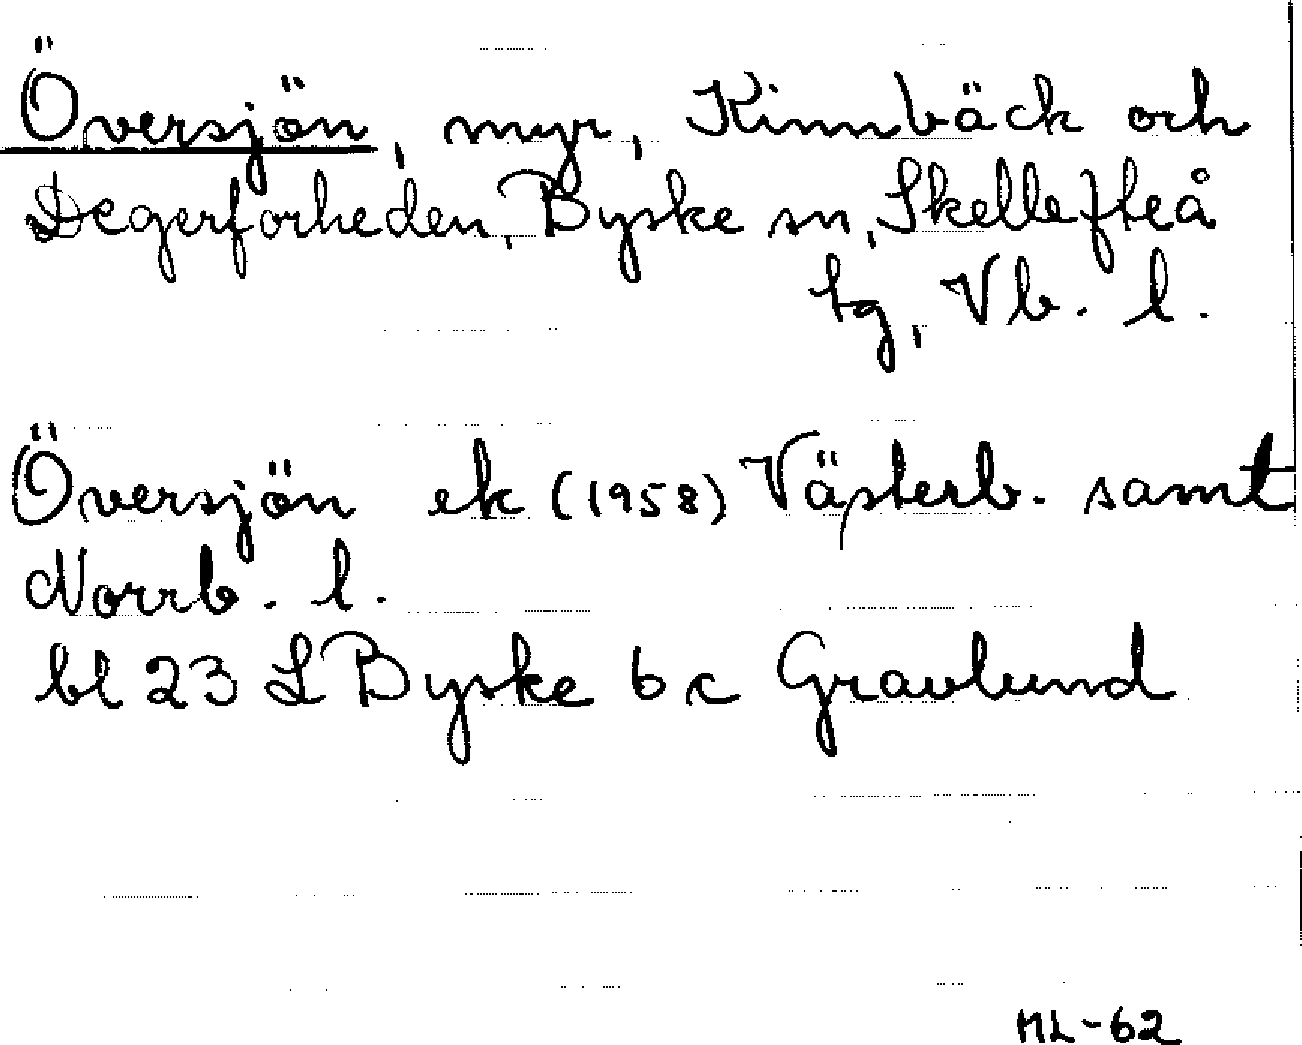 Översjön, myr, Kinnbäck och
Degerforheden, Byske sn, Skellefteå
tg, Vb. l.
Översjön ek (1958) Västerb. samt
Norrb. l.
bl 23 L Byske b c Gravlund
ML-62